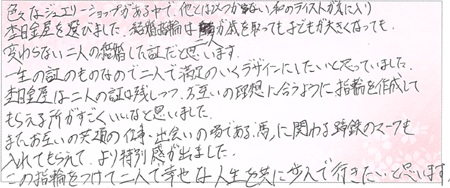 色々なジュエリーショップがある中で、他とはかぶらない私のテイストが気に入り
杢目金屋を選びました。結婚指輪は歳を取っても子どもが大きくなっても、
変わらない二人の結婚した証だと思います。
一生の証のものなので二人で満足のいくデザインにしたいと思っていました。
杢目金屋は二人の証は残しつつ、お互いの理想に合うように指輪を作成して
もらえる所がすごくいいなと思いました。
またお互いの笑顔の仕事・出会いの場である「馬」に関わる蹄鉄のマークも
入れてもらえて、より特別感が出ました。
この指輪をつけて二人で幸せな人生を共に歩んで行きたいと思います。